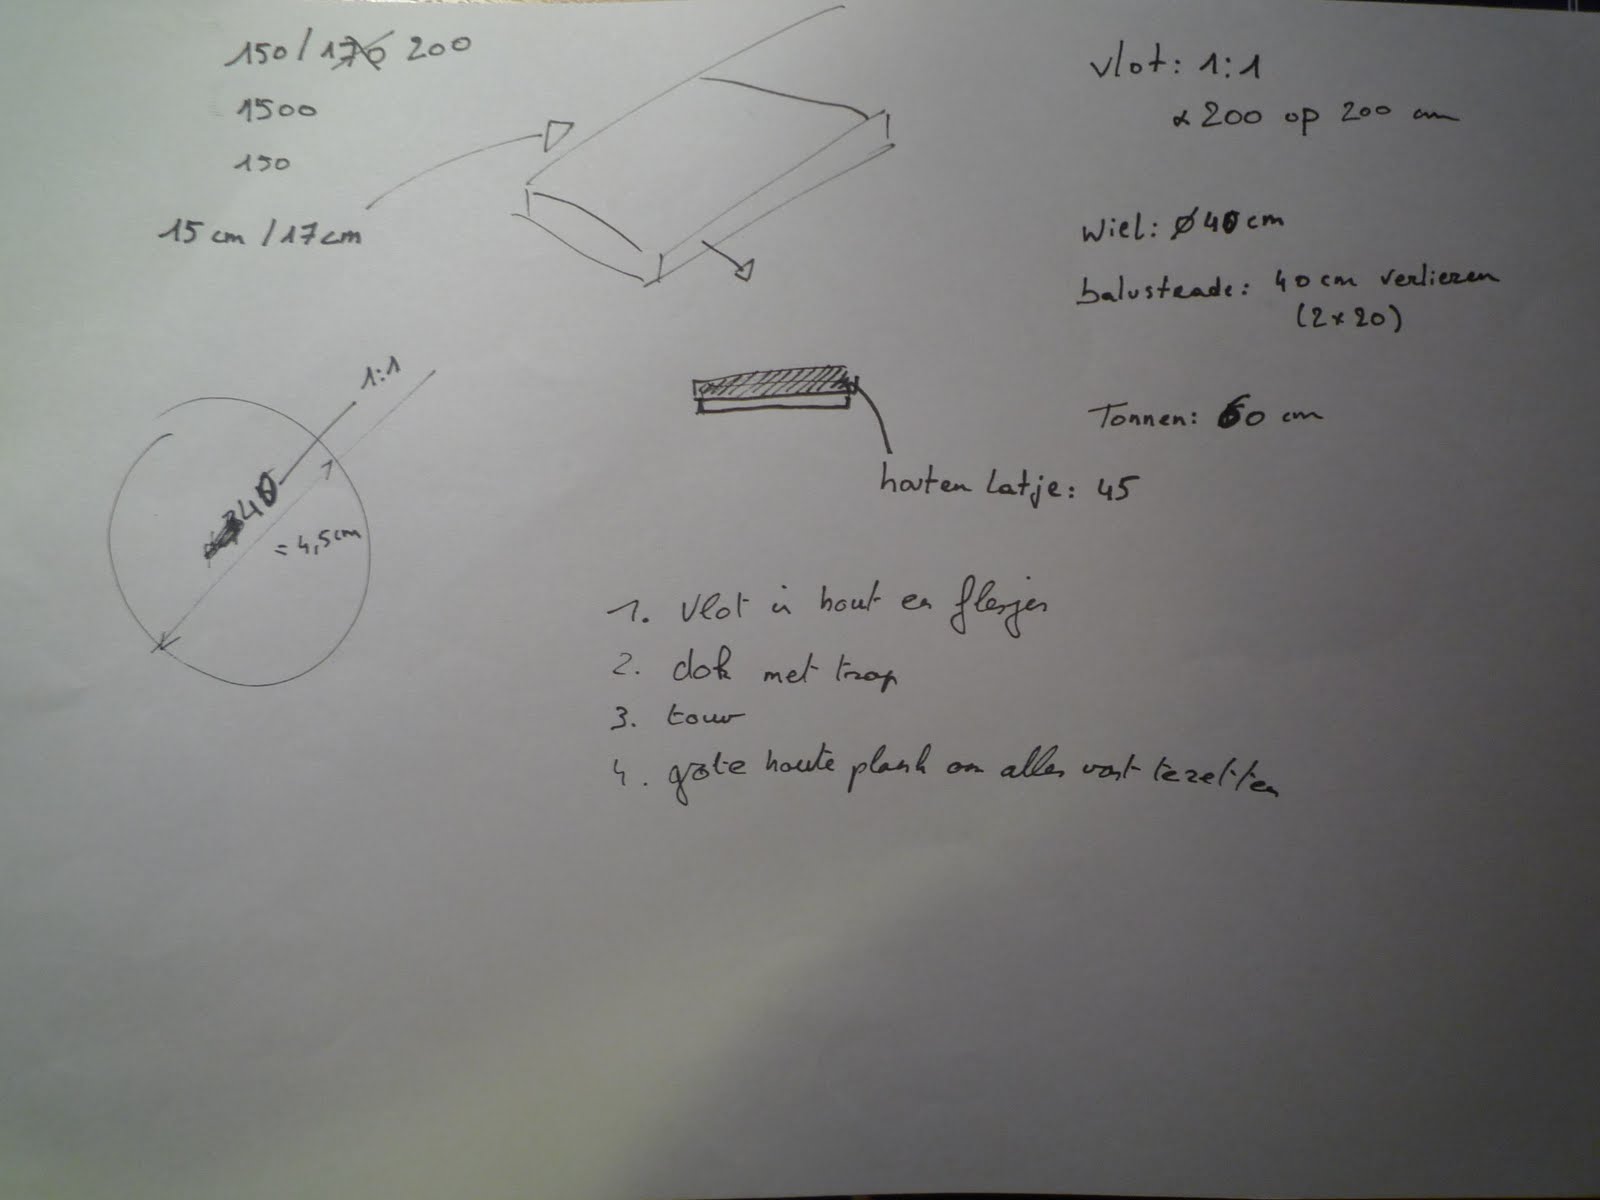 150 / 170 200
1500
150
15 cm / 17 cm
vlot: 1:1
200 op 200 cm
wiel: ø 40 cm
balustrade: 40 cm verliezen
(2 x 20)
Tonnen: 60 cm
houten latje: 45
1:1
340
= 4,5 cm
1. vlot in hout en flesjes
2. dok met trap
3. touw
4. grote houte plank om alles vast te zetten